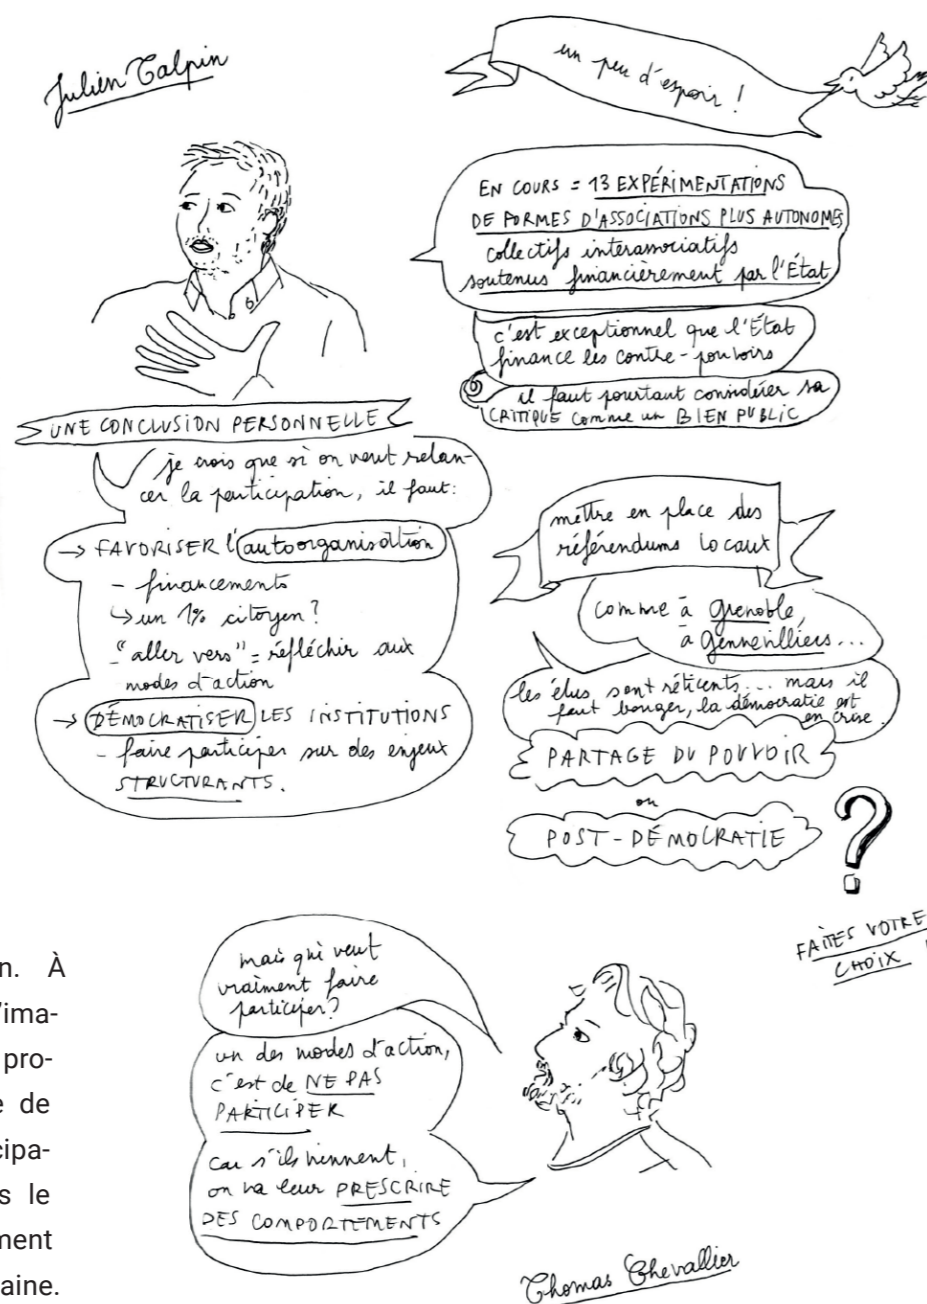 Julien Talpin
un peu d'espoir !
EN COURS = 13 EXPÉRIMENTATIONS
DE FORMES D'ASSOCIATIONS PLUS AUTONOMES
collectifs interassociatifs
soutenus financièrement par l'État
c'est exceptionnel que l'État
finance les contre-pouvoirs
il faut pourtant considérer sa
CRITIQUE comme un BIEN PUBLIC
UNE CONCLUSION PERSONNELLE
je crois que si on veut relan-
cer la participation, il faut :
→ FAVORISER l'autoorganisation
- financements
↳ un 1% citoyen ?
- "aller vers" = réfléchir aux
modes d'action
→ DÉMOCRATISER LES INSTITUTIONS
- faire participer sur des enjeux
STRUCTURANTS.
mettre en place des
référendums locaux
comme à Grenoble,
à Gennevilliers...
les élus sont réticents... mais il
faut bouger, la démocratie est
en crise.
PARTAGE DU POUVOIR
ou
POST-DÉMOCRATIE
?
FAITES VOTRE
CHOIX !
mais qui veut
vraiment faire
participer ?
un des modes d'action,
c'est de NE PAS
PARTICIPER
car s'ils viennent,
on va leur PRESCRIRE
DES COMPORTEMENTS
Thomas Chevallier
n. À
'ima-
pro-
e de
cipa-
s le
ment
aine.